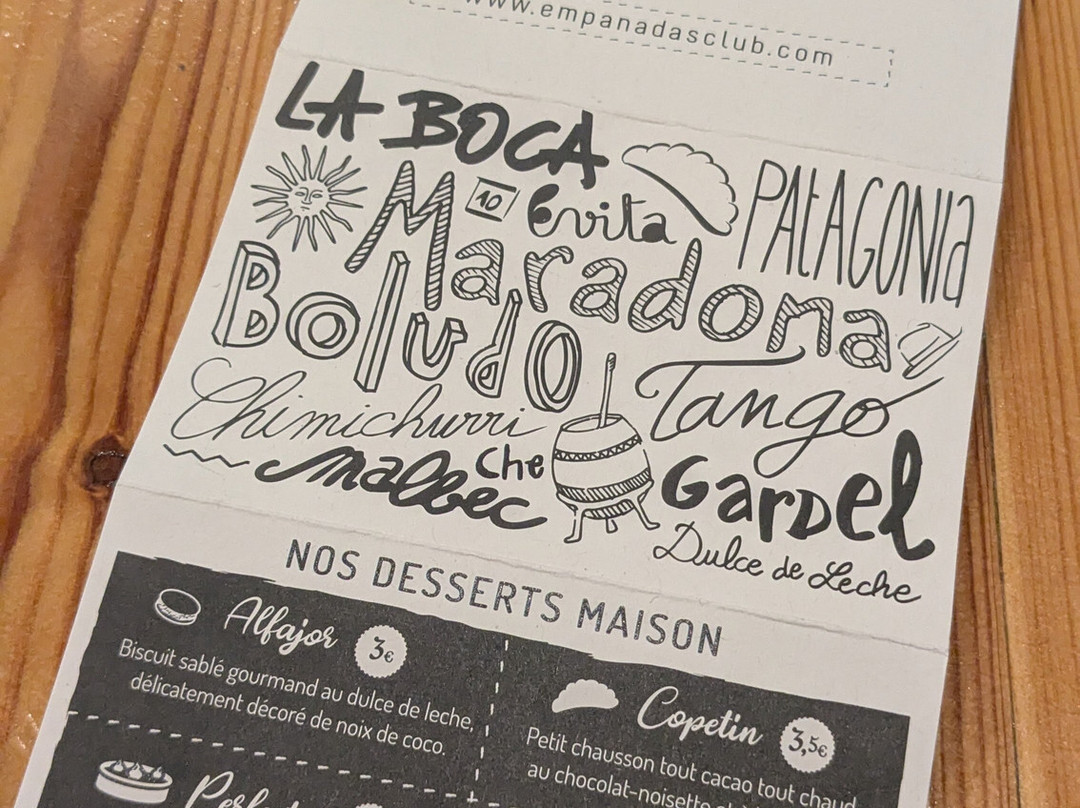 www.empanadasclub.com
LA BOCA
10
Evita
PAtAGONIa
Maradona
Boludo
Chimichurri
Tango
Che
malbec
GaRDel
Dulce de Leche
NOS DESSERTS MAISON
Alfajor 3€
Biscuit sablé gourmand au dulce de leche,
délicatement décoré de noix de coco.
Copetin 3,5€
Petit chausson tout cacao tout chaud
au chocolat-noisette